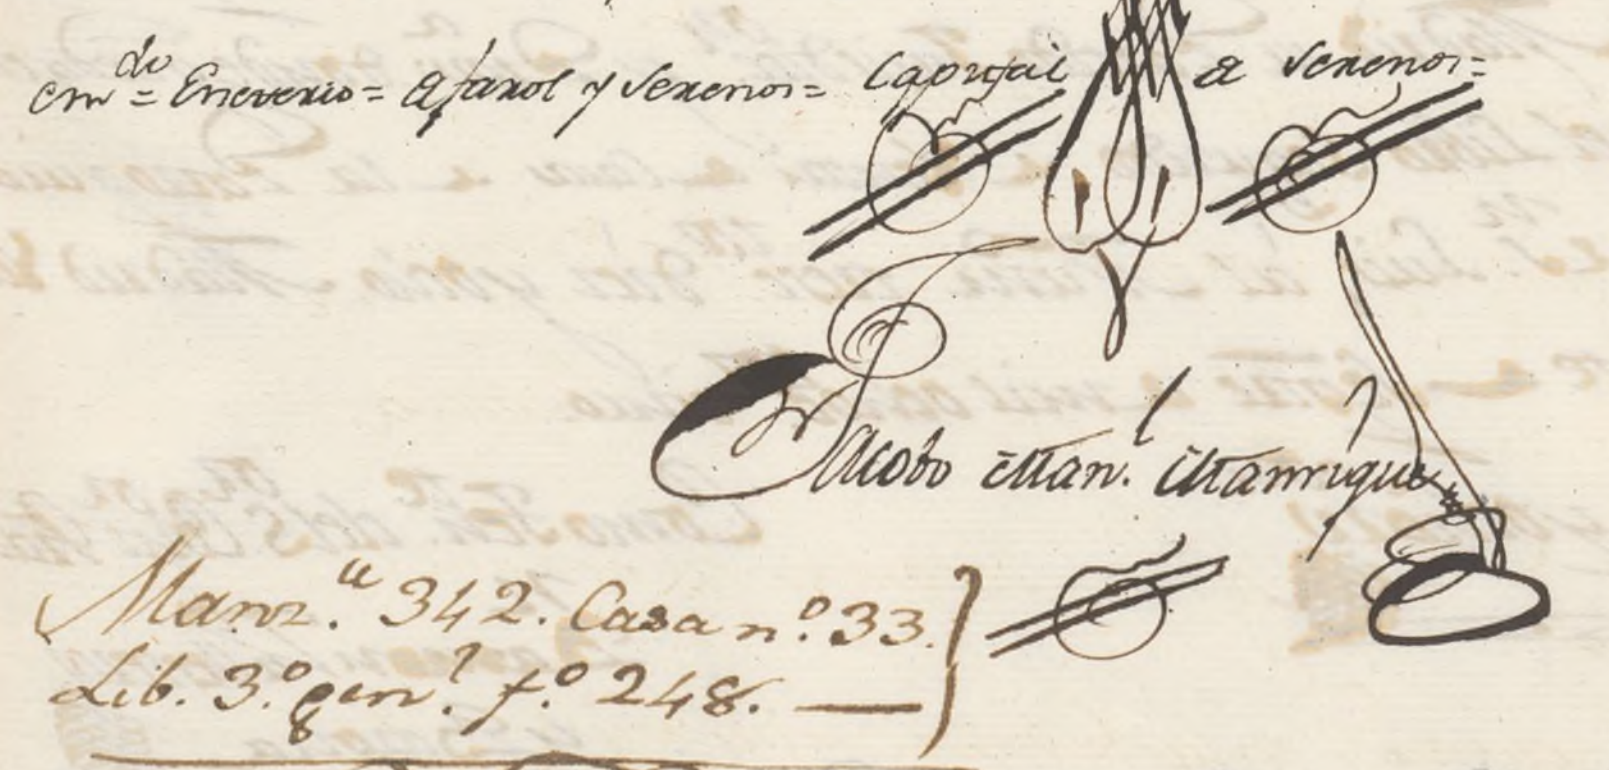 emdo = Eneverio = a farol y Serenos = Capital a Serenos =
Jacobo Man.l Manrique
Manz.a 342. Casa n.o 33.
Lib. 3.o gen.l f.o 248. —